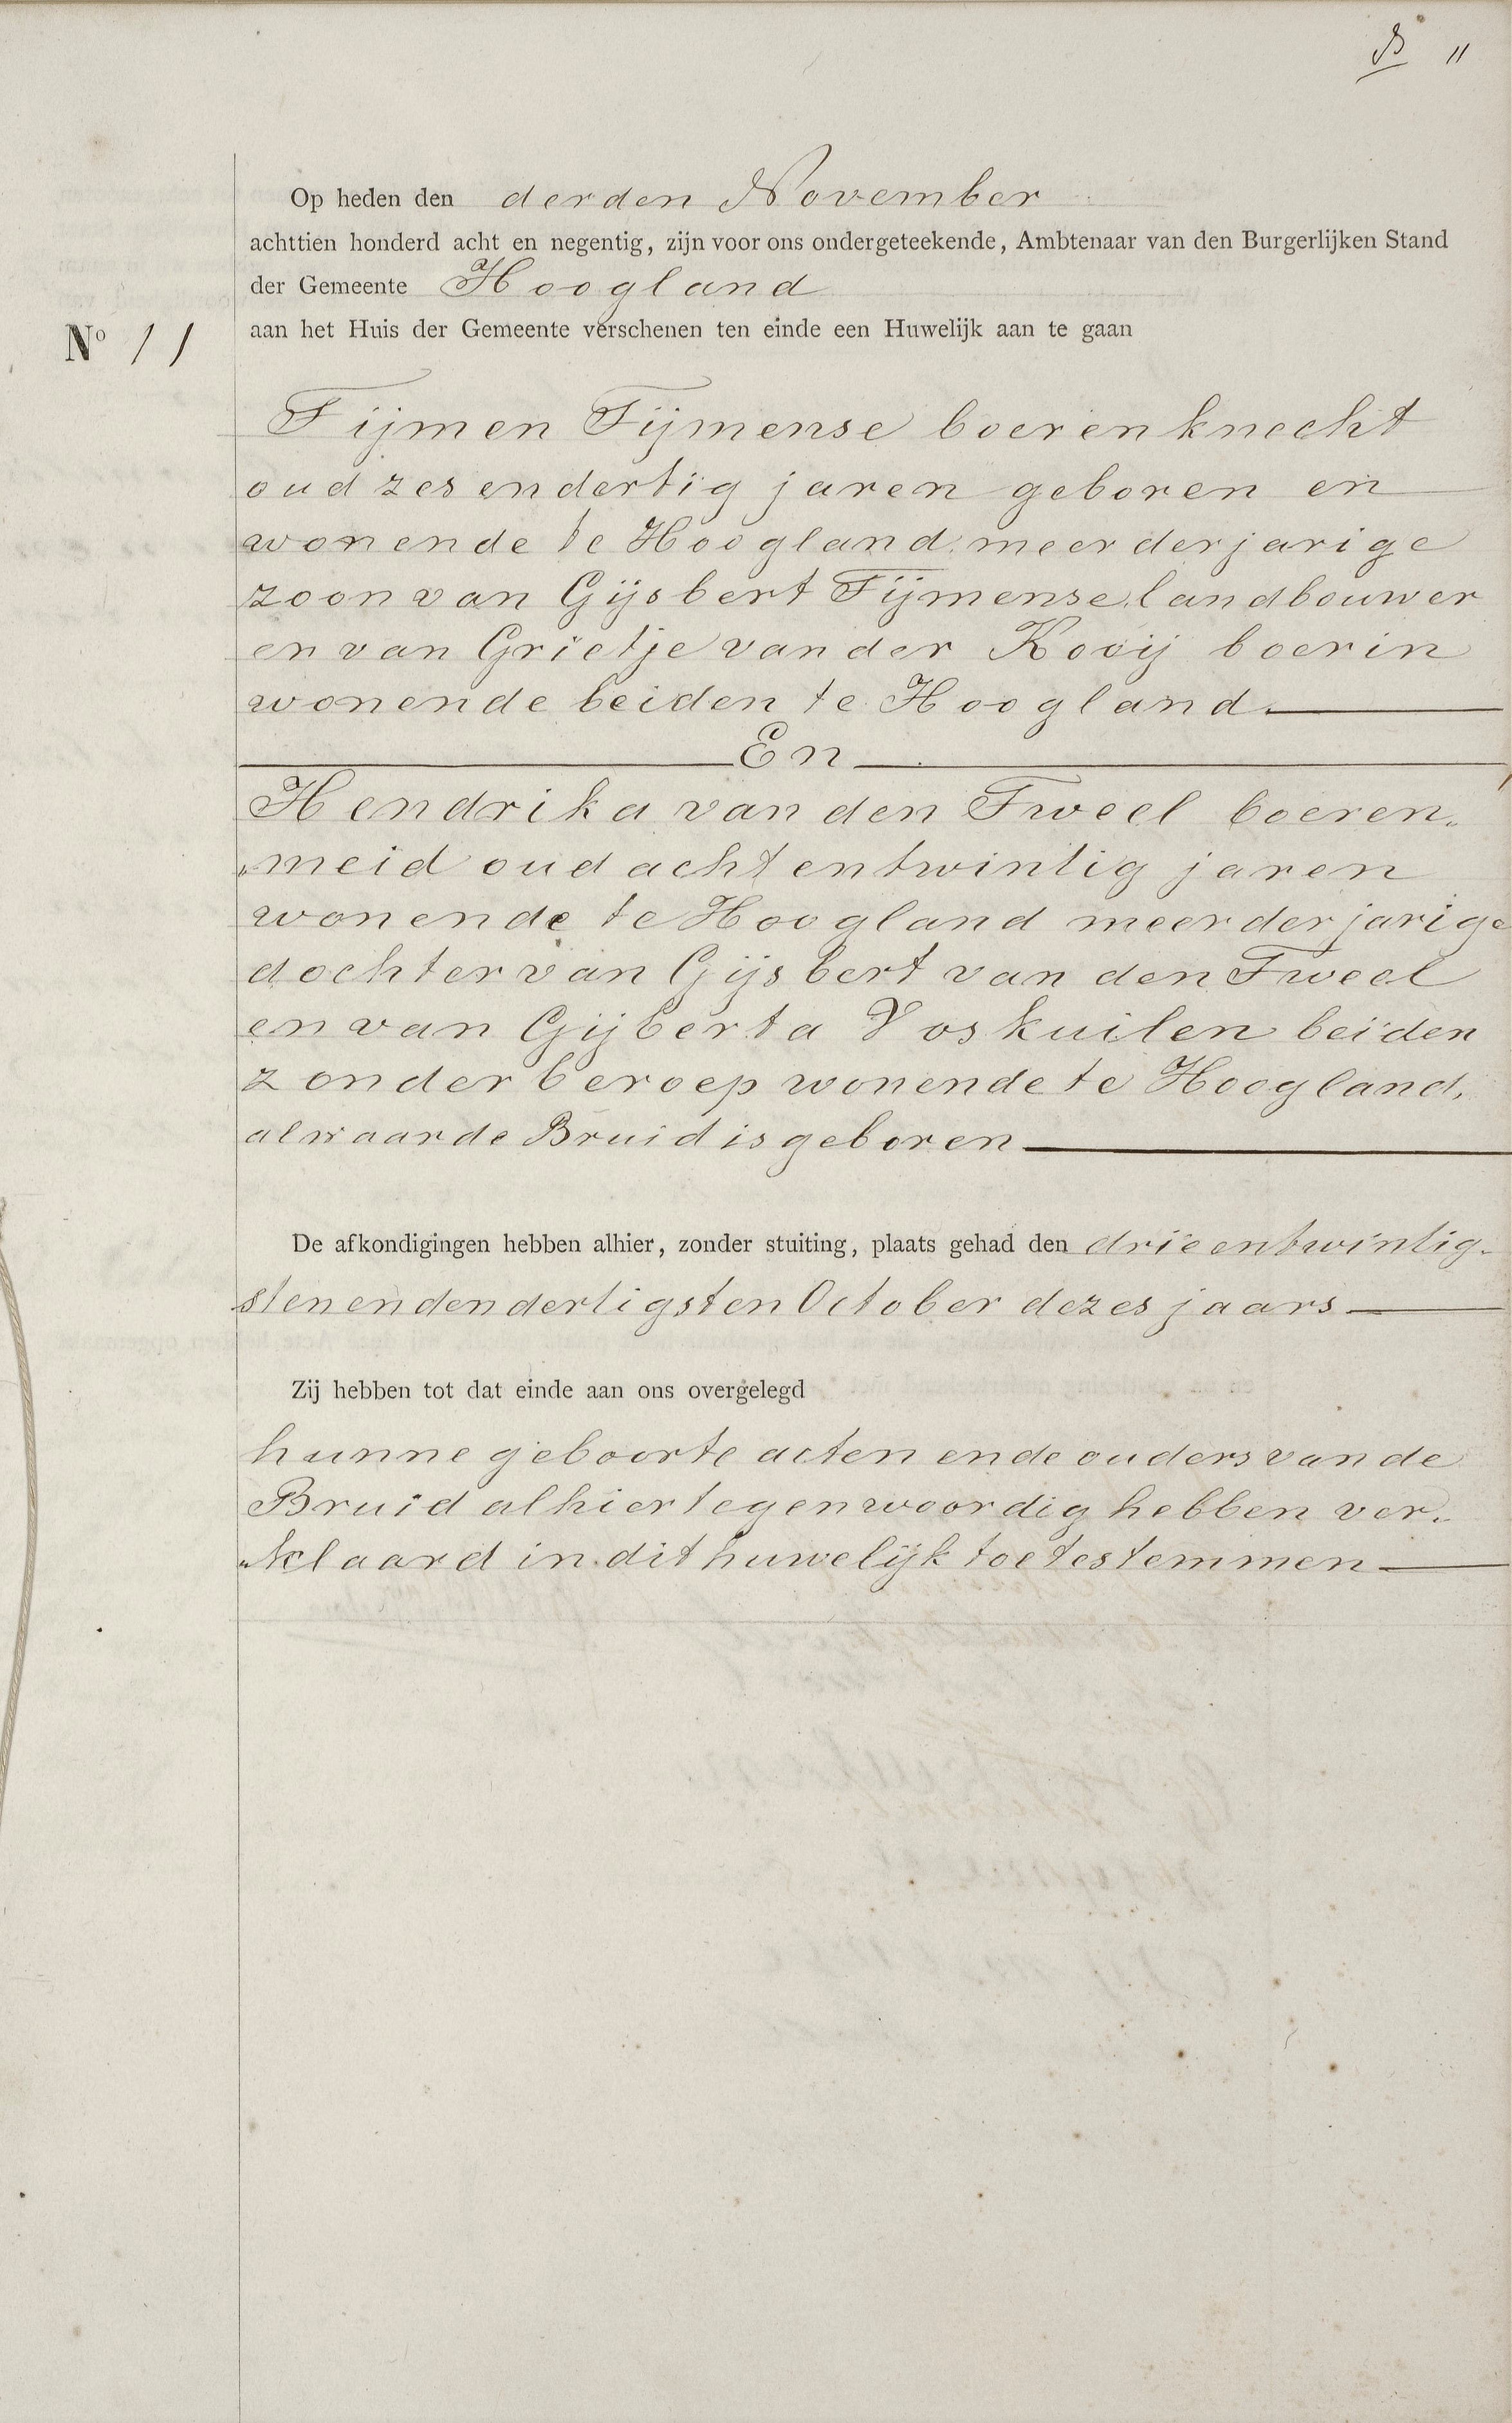 11
Op heden den derden November
achttien honderd acht en negentig, zijn voor ons ondergeteekende, Ambtenaar van den Burgerlijken Stand
der Gemeente Hoogland
No 11
aan het Huis der Gemeente verschenen ten einde een Huwelijk aan te gaan
Tijmen Tijmense boerenknecht
oud zesendertig jaren geboren en
wonende te Hoogland meerderjarige
zoon van Gijsbert Tijmense landbouwer
en van Grietje van der Kooij boerin
wonende beiden te Hoogland
En
Hendrika van den Tweel boeren„
„meid oud acht en twintig jaren
wonende te Hoogland meerderjarige
dochter van Gijsbert van den Tweel
en van Gijberta Voskuilen beiden
zonder beroep wonende te Hoogland,
alwaar de Bruid is geboren
De afkondigingen hebben alhier, zonder stuiting, plaats gehad den drieentwintig„
sten en den dertigsten October dezes jaars
Zij hebben tot dat einde aan ons overgelegd
hunne geboorte acten en de ouders van de
Bruid alhier tegenwoordig hebben ver„
„klaard in dit huwelijk toetestemmen